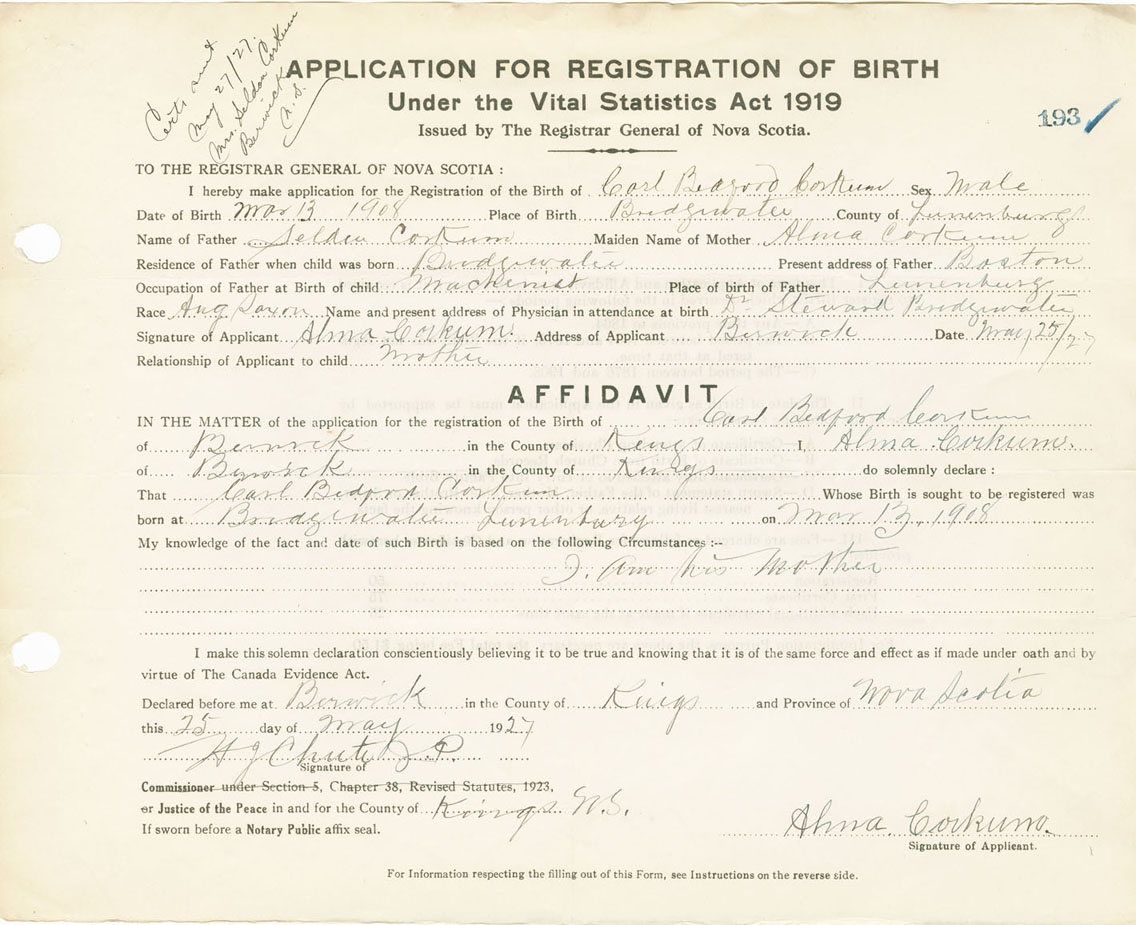 Certs sent
May 27/27.
Mrs. Selden Corkum
Berwick
N.S.
APPLICATION FOR REGISTRATION OF BIRTH
Under the Vital Statistics Act 1919
Issued by The Registrar General of Nova Scotia.
193
TO THE REGISTRAR GENERAL OF NOVA SCOTIA :
I hereby make application for the Registration of the Birth of Carl Bedford Corkum Sex Male
Date of Birth Mar 13 1908 Place of Birth Bridgewater County of Lunenburg
Name of Father Selden Corkum Maiden Name of Mother Alma Corkum
Residence of Father when child was born Bridgewater Present address of Father Boston
Occupation of Father at Birth of child Machinist Place of birth of Father Lunenburg
Race Ang Saxon Name and present address of Physician in attendance at birth Dr Steward Bridgewater
Signature of Applicant Alma Corkum. Address of Applicant Berwick Date May 25/27
Relationship of Applicant to child Mother
AFFIDAVIT
IN THE MATTER of the application for the registration of the Birth of Carl Bedford Corkum
of Berwick in the County of Kings I, Alma Corkum.
of Berwick in the County of Kings do solemnly declare :
That Carl Bedford Corkum Whose Birth is sought to be registered was
born at Bridgewater Lunenburg on Mar 13, 1908
My knowledge of the fact and date of such Birth is based on the following Circumstances :--
I. am his Mother
I make this solemn declaration conscientiously believing it to be true and knowing that it is of the same force and effect as if made under oath and by
virtue of The Canada Evidence Act.
Declared before me at Berwick in the County of Kings and Province of Nova Scotia
this 25 day of May 1927
H J Chute J.P.
Signature of
Commissioner under Section 5, Chapter 38, Revised Statutes, 1923,
or Justice of the Peace in and for the County of Kings N.S.
If sworn before a Notary Public affix seal.
Alma. Corkum.
Signature of Applicant.
For Information respecting the filling out of this Form, see Instructions on the reverse side.